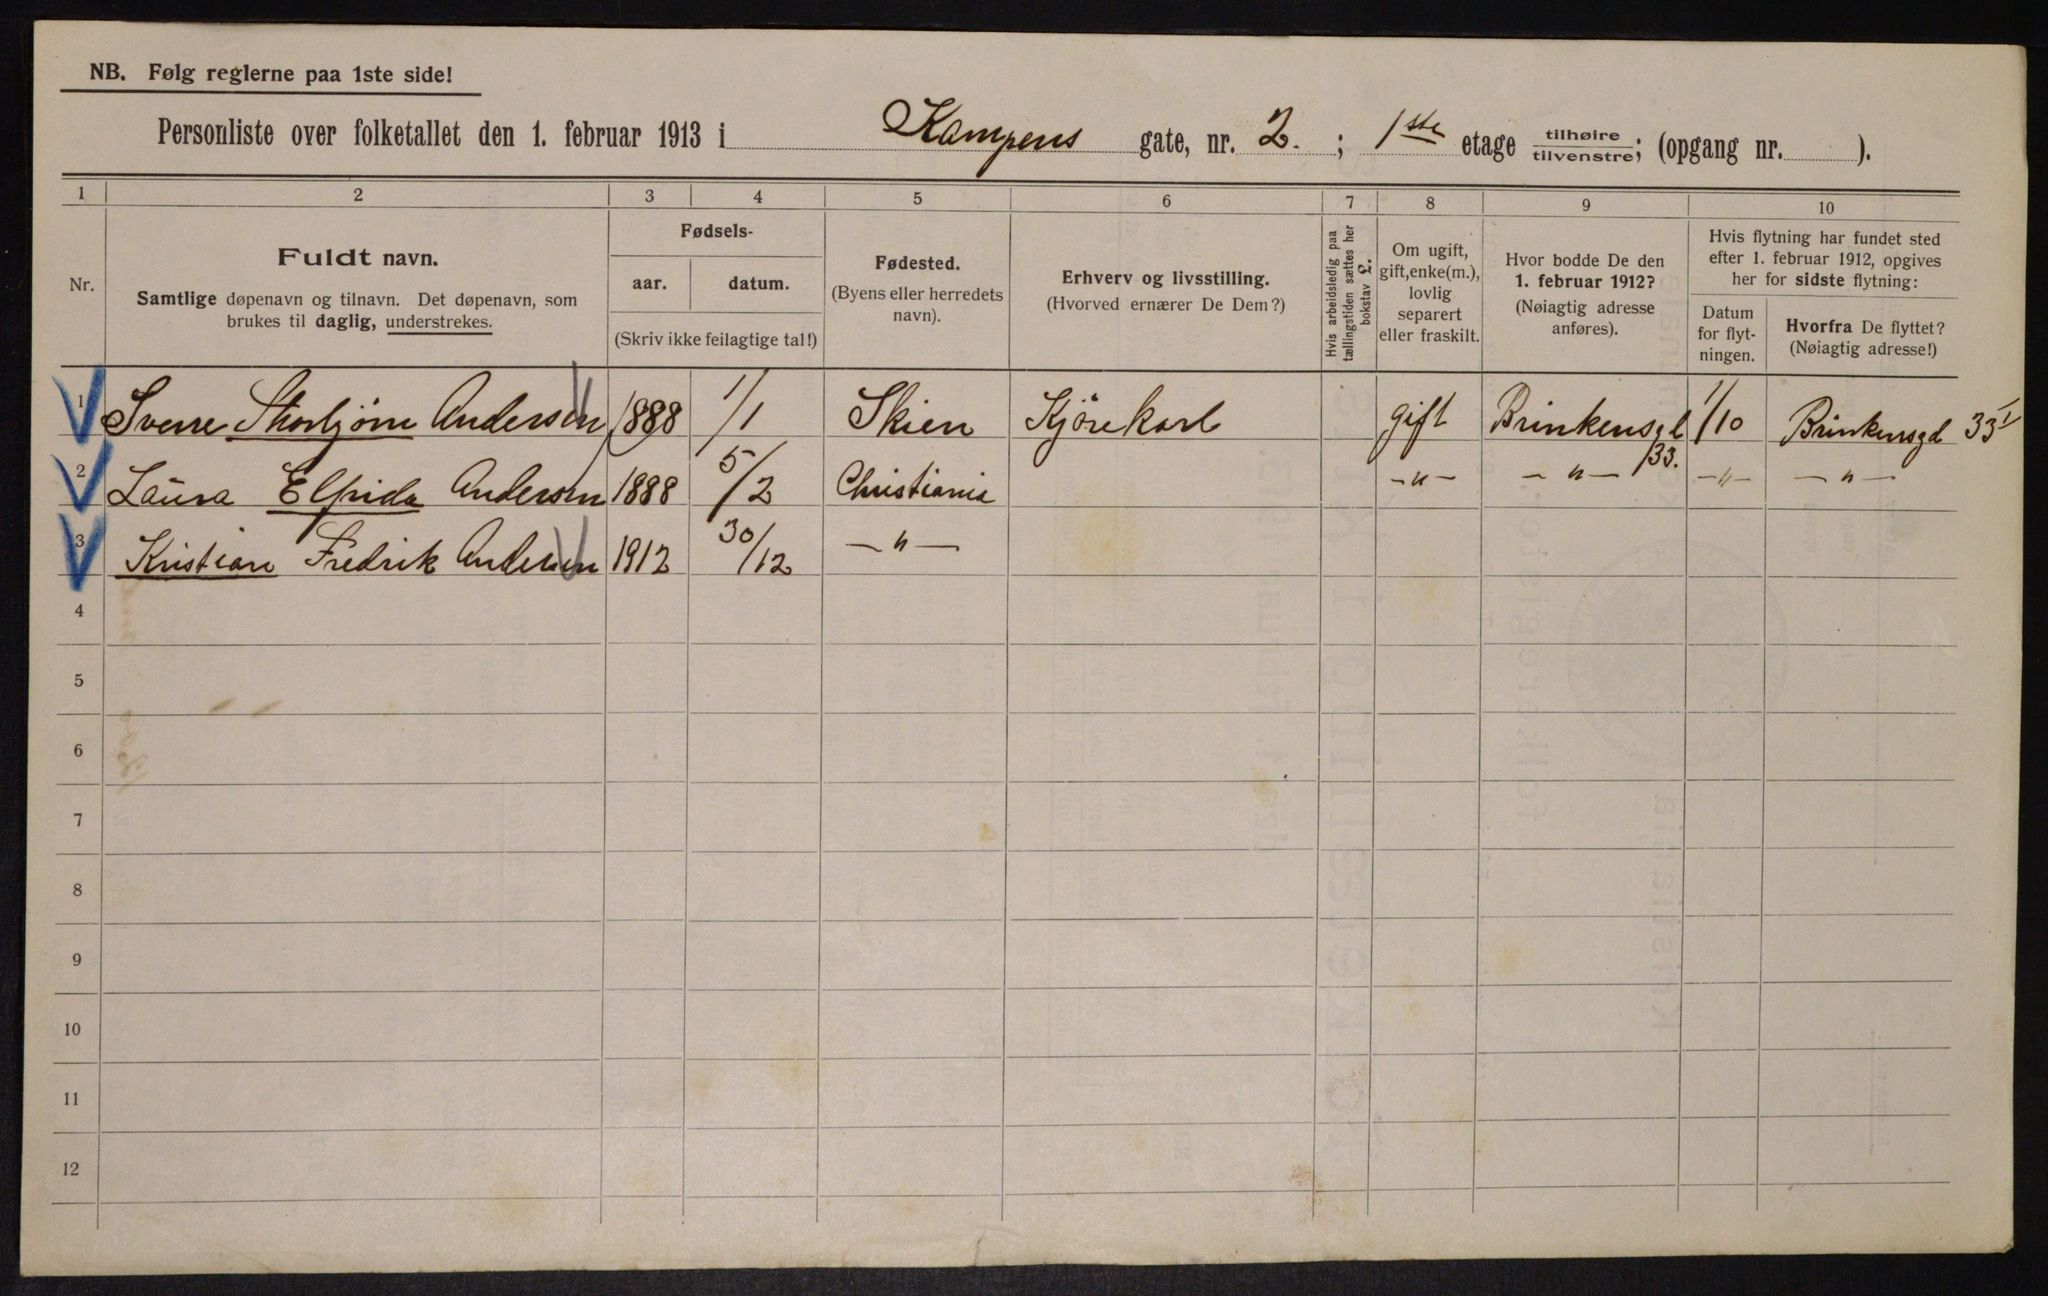 NB. Følg reglerne paa 1ste side!
Personliste over folketallet den 1. februar 1913 i Kampens gate, nr. 2. ; 1ste etage tilhøire/tilvenstre; (opgang nr. ).
1 2 3 4 5 6 7 8 9 10
Nr.
Fuldt navn.
Samtlige døpenavn og tilnavn. Det døpenavn, som
brukes til daglig, understrekes.
Fødsels-
aar. datum.
(Skriv ikke feilagtige tal!)
Fødested.
(Byens eller herredets
navn).
Erhverv og livsstilling.
(Hvorved ernærer De Dem?)
Hvis arbeidsledig paa
tællingstiden sættes her
bokstav L.
Om ugift,
gift, enke(m.),
lovlig
separert
eller fraskilt.
Hvor bodde De den
1. februar 1912?
(Nøiagtig adresse
anføres).
Hvis flytning har fundet sted
efter 1. februar 1912, opgives
her for sidste flytning:
Datum
for flyt-
ningen.
Hvorfra De flyttet?
(Nøiagtig adresse!)
1 Sverre Andersen 1888 1/1 Skien Kjørekarl gift Brinkensgt 33. 1/10 Brinkensgd 33 I
2 Laura Elfrida Andersen 1888 5/2 Christiania -"- -"- -"- -"-
3 Kristian Fredrik Andersen 1912 30/12 -"-
4
5
6
7
8
9
10
11
12